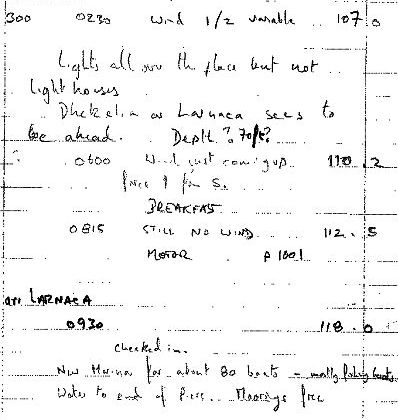 300 0230 Wind 1/2 variable 107.0
Lights all over the place but not
light houses
Dhekelia or Larnaca seems to
be ahead. Depth? 70ft?
0600 Wind just coming up 110.2
force 1 from S.
BREAKFAST
0815 STILL NO WIND 112.5
MOTOR
arr LARNACA
0930 118.0
checked in.
New Marina for about 80 boats - mostly fishing boats
Water to end of Pier. Moorings free